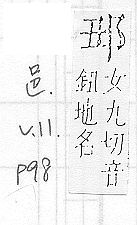 女九切音
鈕地名
邑.
V.11.
P98